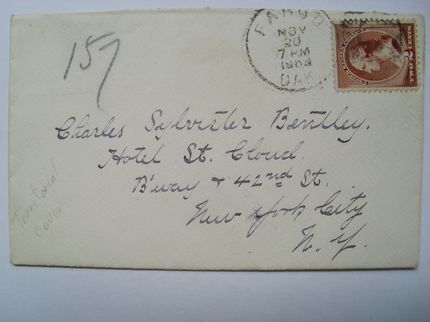 157
FARGO
NOV
20
7 PM
DAK
TWO CENTS
Charles Sylvister Bentley.
Hotel St. Cloud.
B'way + 42nd St.
New York City
N.Y.
Territorial
Cover